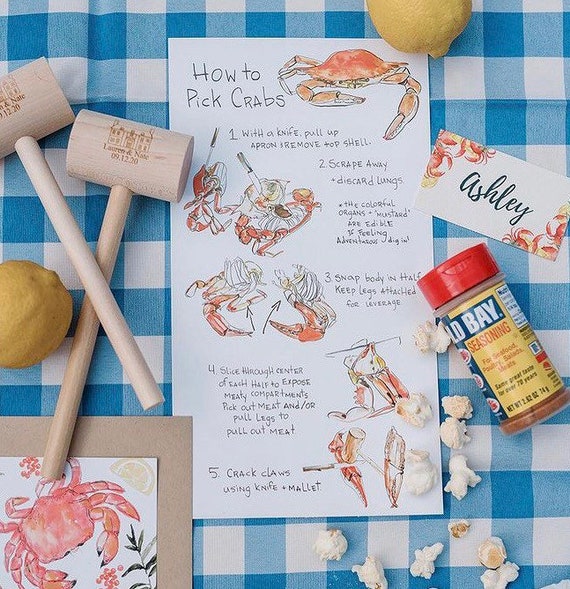 How to
Pick Crabs
1. With a knife, pull up
apron & remove top shell.
2. Scrape away
+ discard lungs
* the colorful
organs + "mustard"
are edible
if feeling
adventurous / dig in!
3. Snap body in half
Keep legs attached
for leverage
4. Slice through center
of each half to expose
meaty compartments
Pick out meat and/or
pull legs to
pull out meat
5. Crack claws
using knife + mallet.
& Nate
09.12.20
Lauren & Nate
09.12.20
Ashley
LD BAY.
SEASONING
For Seafood,
Poultry, Salads,
Meats
Same great taste
for over 70 years
NET WT 2.62 OZ 74 g